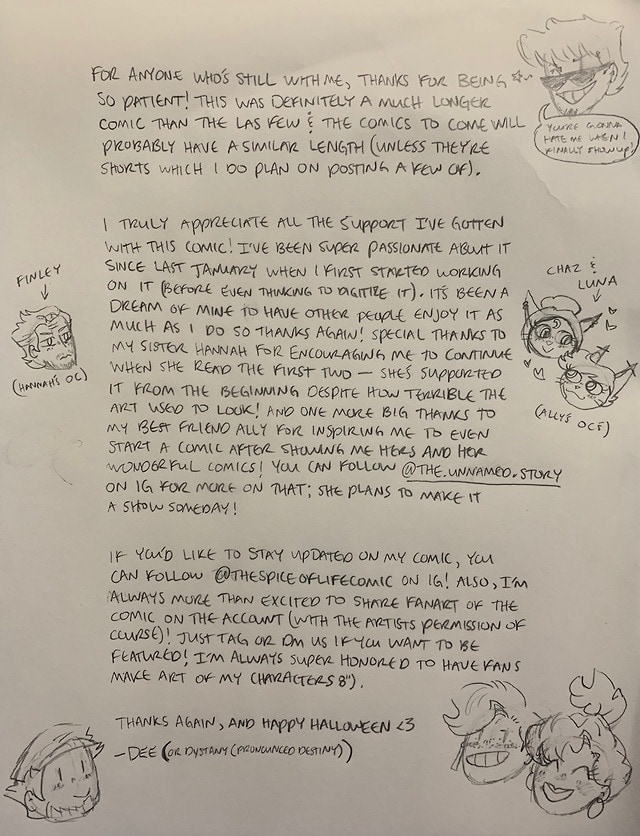 FOR ANYONE WHO'S STILL WITH ME, THANKS FOR BEING
SO PATIENT! THIS WAS DEFINITELY A MUCH LONGER
COMIC THAN THE LAS FEW & THE COMICS TO COME WILL
PROBABLY HAVE A SIMILAR LENGTH (UNLESS THEY'RE
SHORTS WHICH I DO PLAN ON POSTING A FEW OF).
YOU'RE GONNA
HATE ME WHEN I
FINALLY SHOW UP!
I TRULY APPRECIATE ALL THE SUPPORT I'VE GOTTEN
WITH THIS COMIC! I'VE BEEN SUPER PASSIONATE ABOUT IT
SINCE LAST JANUARY WHEN I FIRST STARTED WORKING
ON IT (BEFORE EVEN THINKING TO DIGITIZE IT). IT'S BEEN A
DREAM OF MINE TO HAVE OTHER PEOPLE ENJOY IT AS
MUCH AS I DO SO THANKS AGAIN! SPECIAL THANKS TO
MY SISTER HANNAH FOR ENCOURAGING ME TO CONTINUE
WHEN SHE READ THE FIRST TWO — SHE'S SUPPORTED
IT FROM THE BEGINNING DESPITE HOW TERRIBLE THE
ART USED TO LOOK! AND ONE MORE BIG THANKS TO
MY BEST FRIEND ALLY FOR INSPIRING ME TO EVEN
START A COMIC AFTER SHOWING ME HERS AND HER
WONDERFUL COMICS! YOU CAN FOLLOW @THE.UNNAMED.STORY
ON IG FOR MORE ON THAT; SHE PLANS TO MAKE IT
A SHOW SOMEDAY!
FINLEY
(HANNAH'S OC)
CHAZ &
LUNA
(ALLY'S OCS)
IF YOU'D LIKE TO STAY UPDATED ON MY COMIC, YOU
CAN FOLLOW @THESPICEOFLIFECOMIC ON IG! ALSO, I'M
ALWAYS MORE THAN EXCITED TO SHARE FANART OF THE
COMIC ON THE ACCOUNT (WITH THE ARTISTS PERMISSION OF
COURSE)! JUST TAG OR DM US IF YOU WANT TO BE
FEATURED! I'M ALWAYS SUPER HONORED TO HAVE FANS
MAKE ART OF MY CHARACTERS 8").
THANKS AGAIN, AND HAPPY HALLOWEEN <3
—DEE (OR DYSTANY (PRONOUNCED DESTINY))